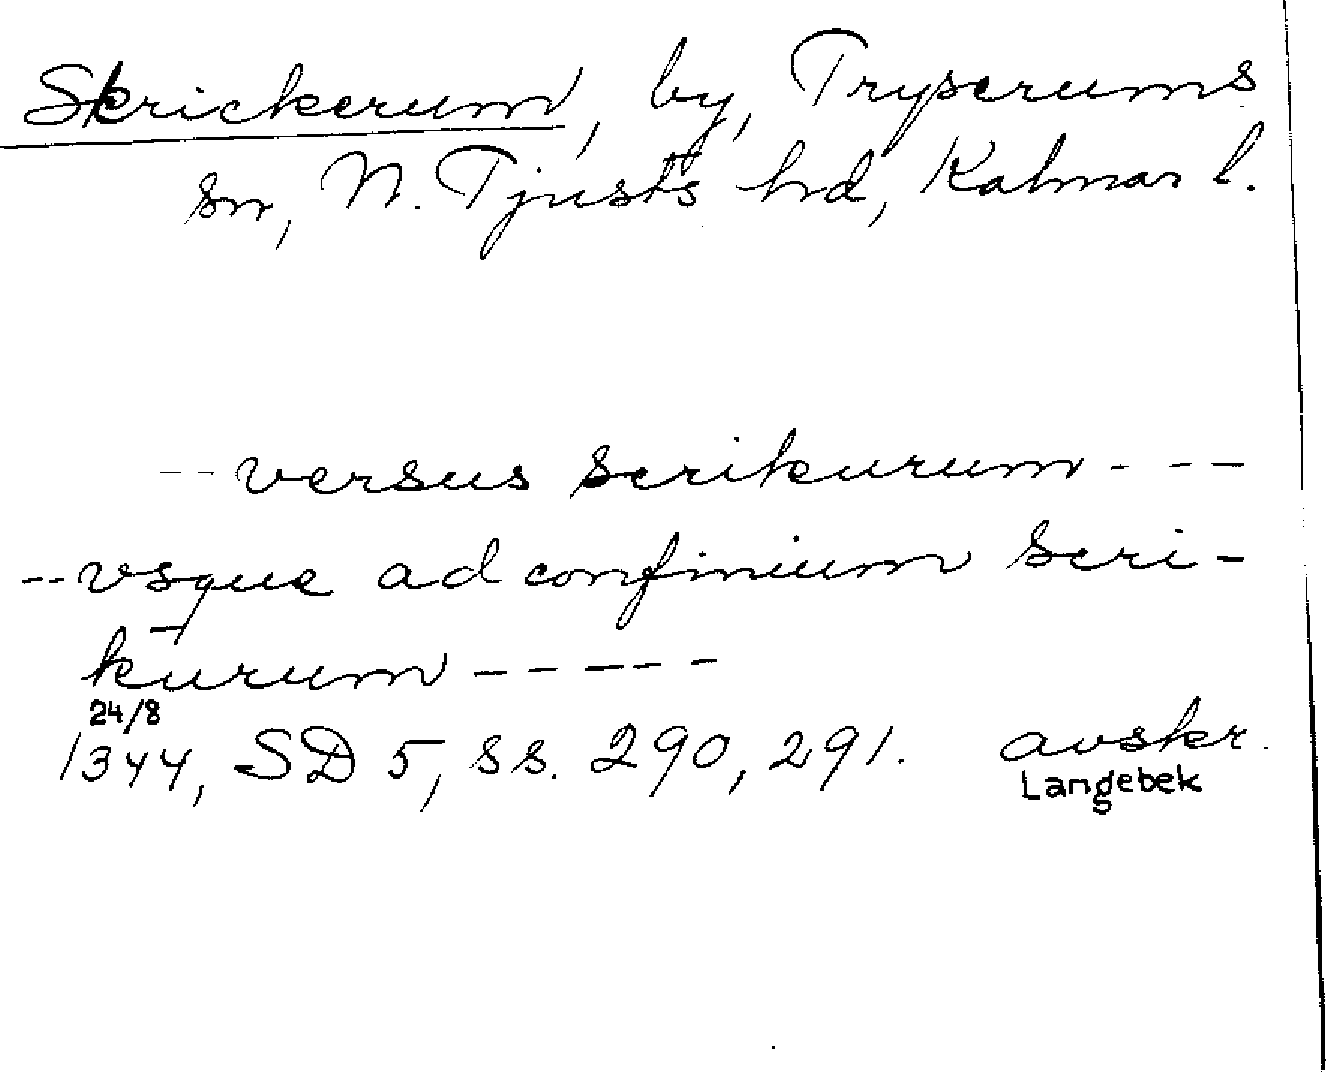 Skrickerum, by, Tryserums
sn, N. Tjusts hd, Kalmar l.
-- versus Scrikurum - - -
-- vsque ad confinium Scri-
kurum - - - - -
24/8
1344, SD 5, ss. 290, 291. avskr.
Langebek